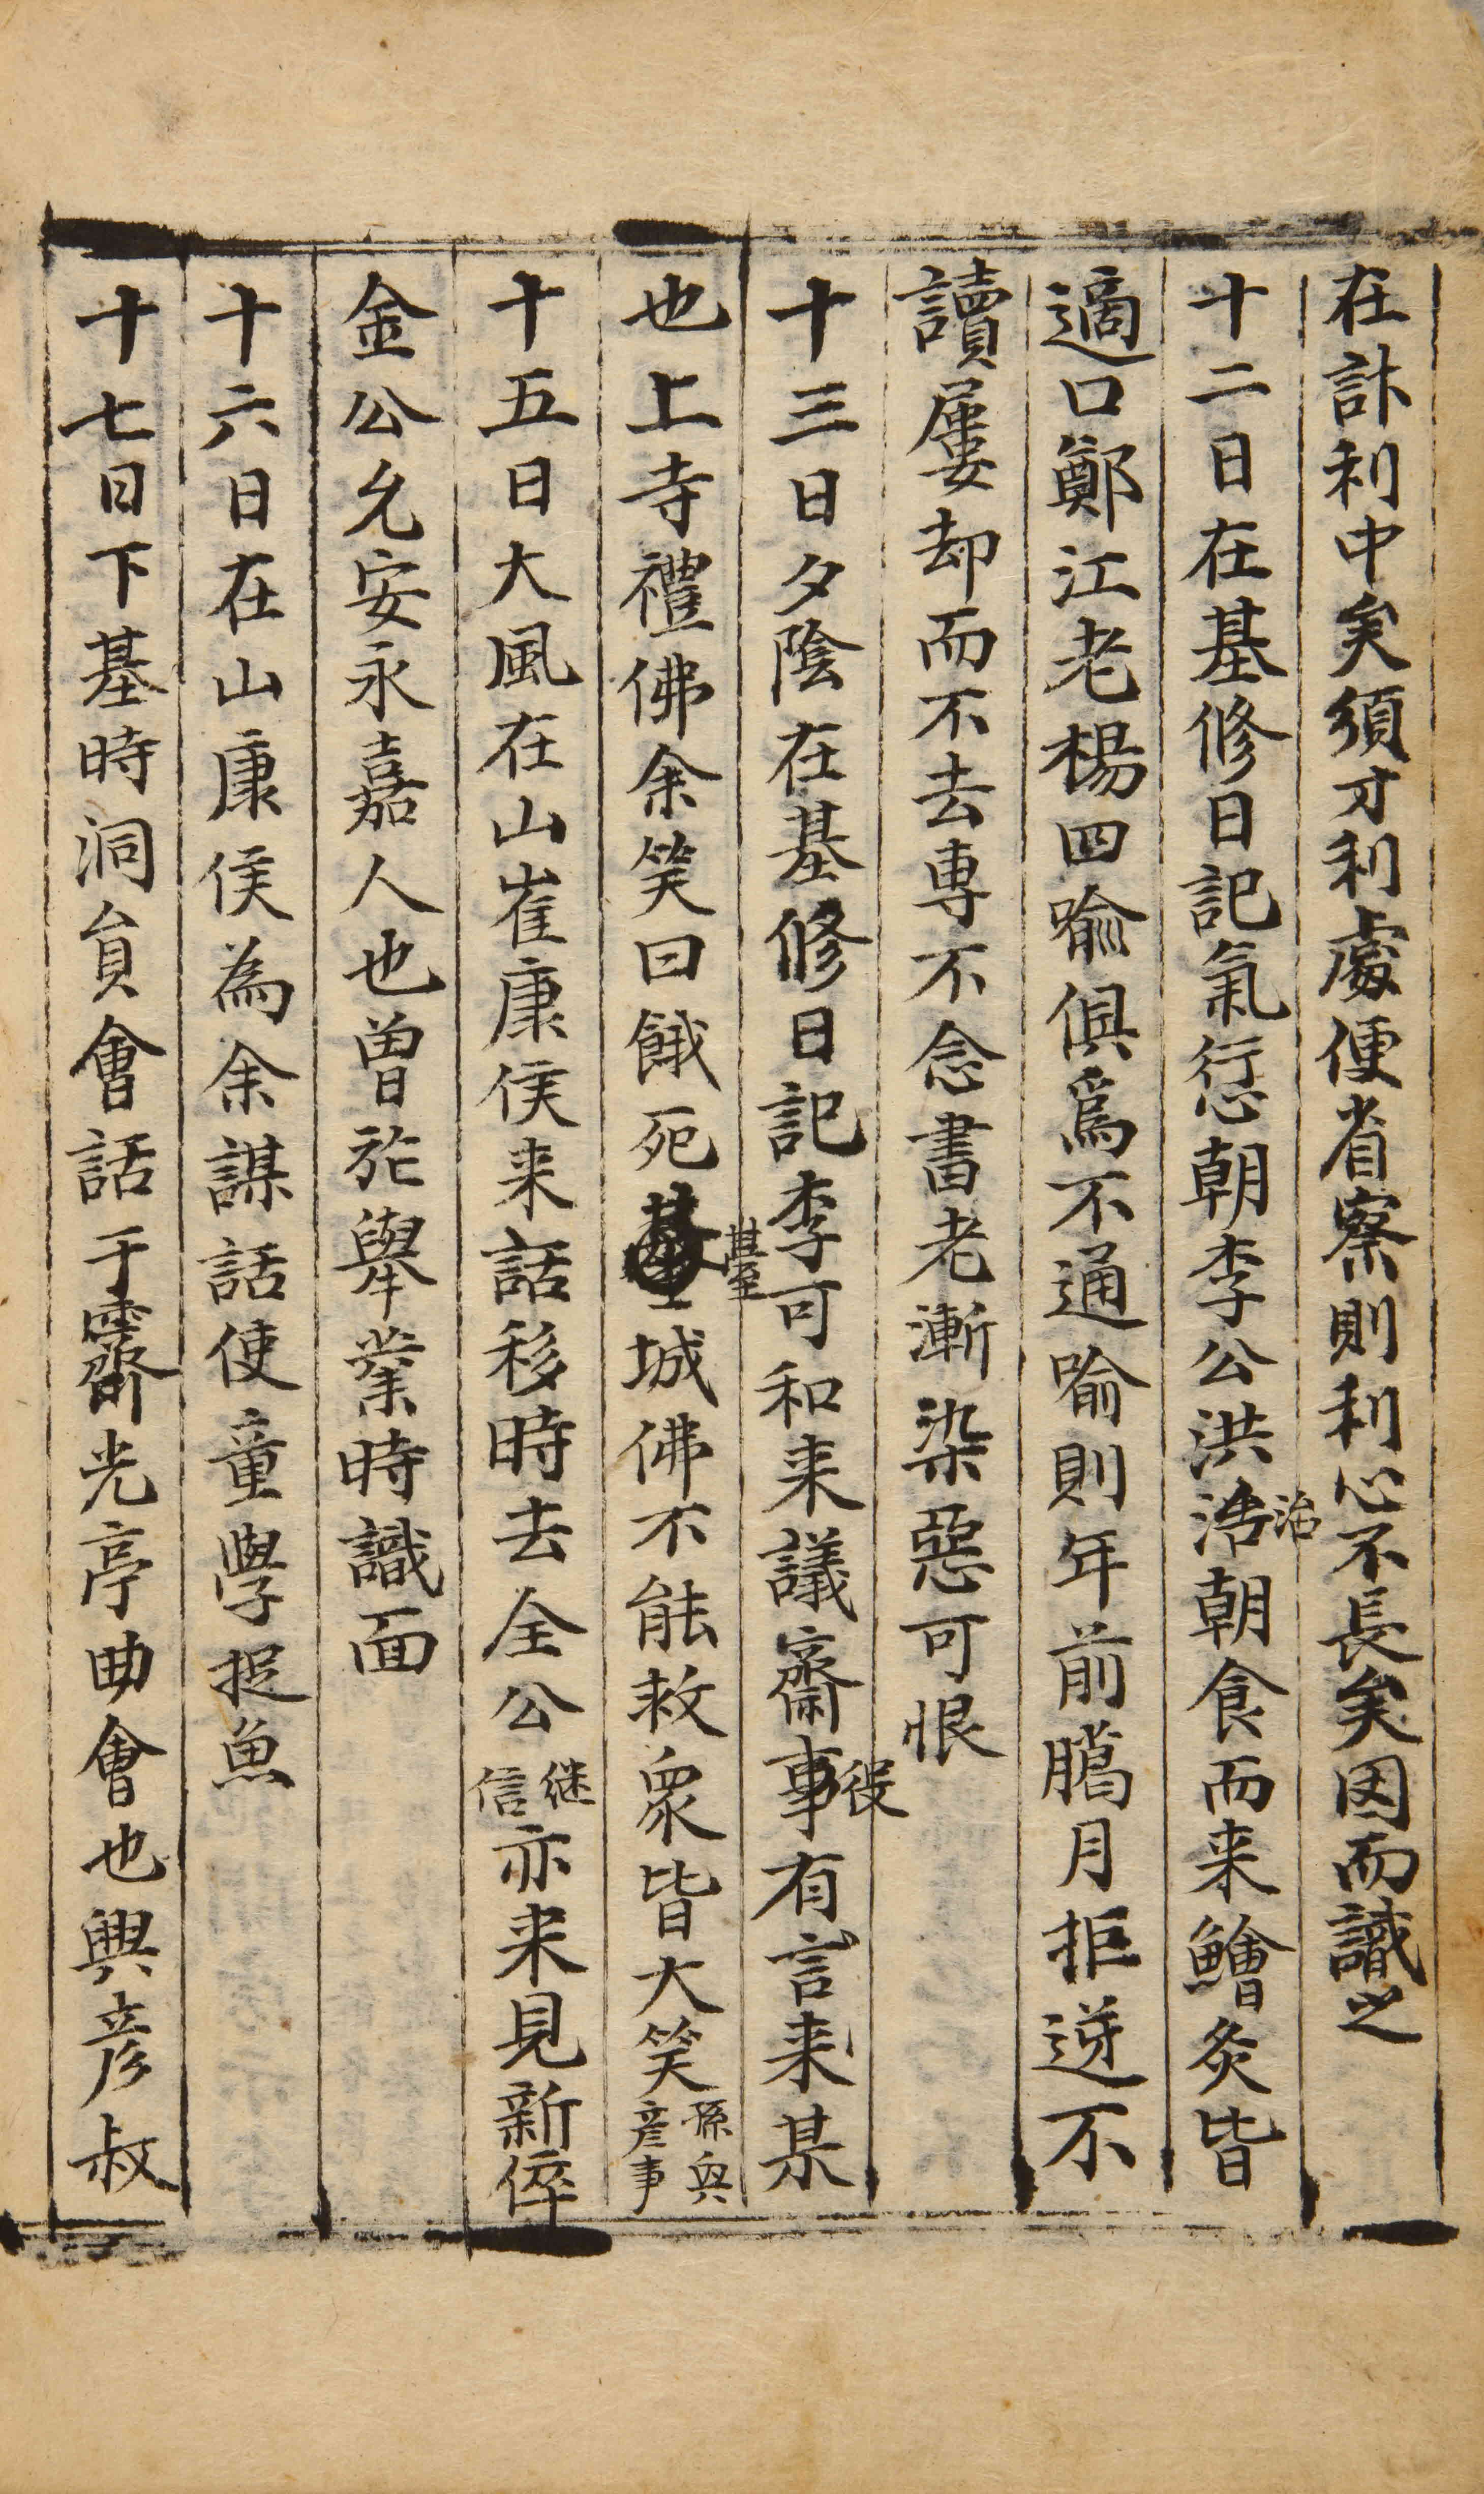 在計利中矣須才利處便省察則利心不長矣因而識之
十二日在基修日記氣愆朝李公洪浩治朝食而来鱠炙皆
適口鄭江老楊四喻俱爲不通喻則年前臈月拒逆不
讀屢却而不去專不念書老漸染惡可恨
十三日夕陰在基修日記李可和来議齋事役有言来某
也上寺禮佛余笑曰餓死臺城佛不能救衆皆大笑孫興彦事
十五日大風在山崔康侯来話移時去全公継信亦来見新倅
金公允安永嘉人也曽於舉業時識面
十六日在山康侯為余謀話使童學捉魚
十七日下基時洞員會話于齋光亭曲會也興彦叔